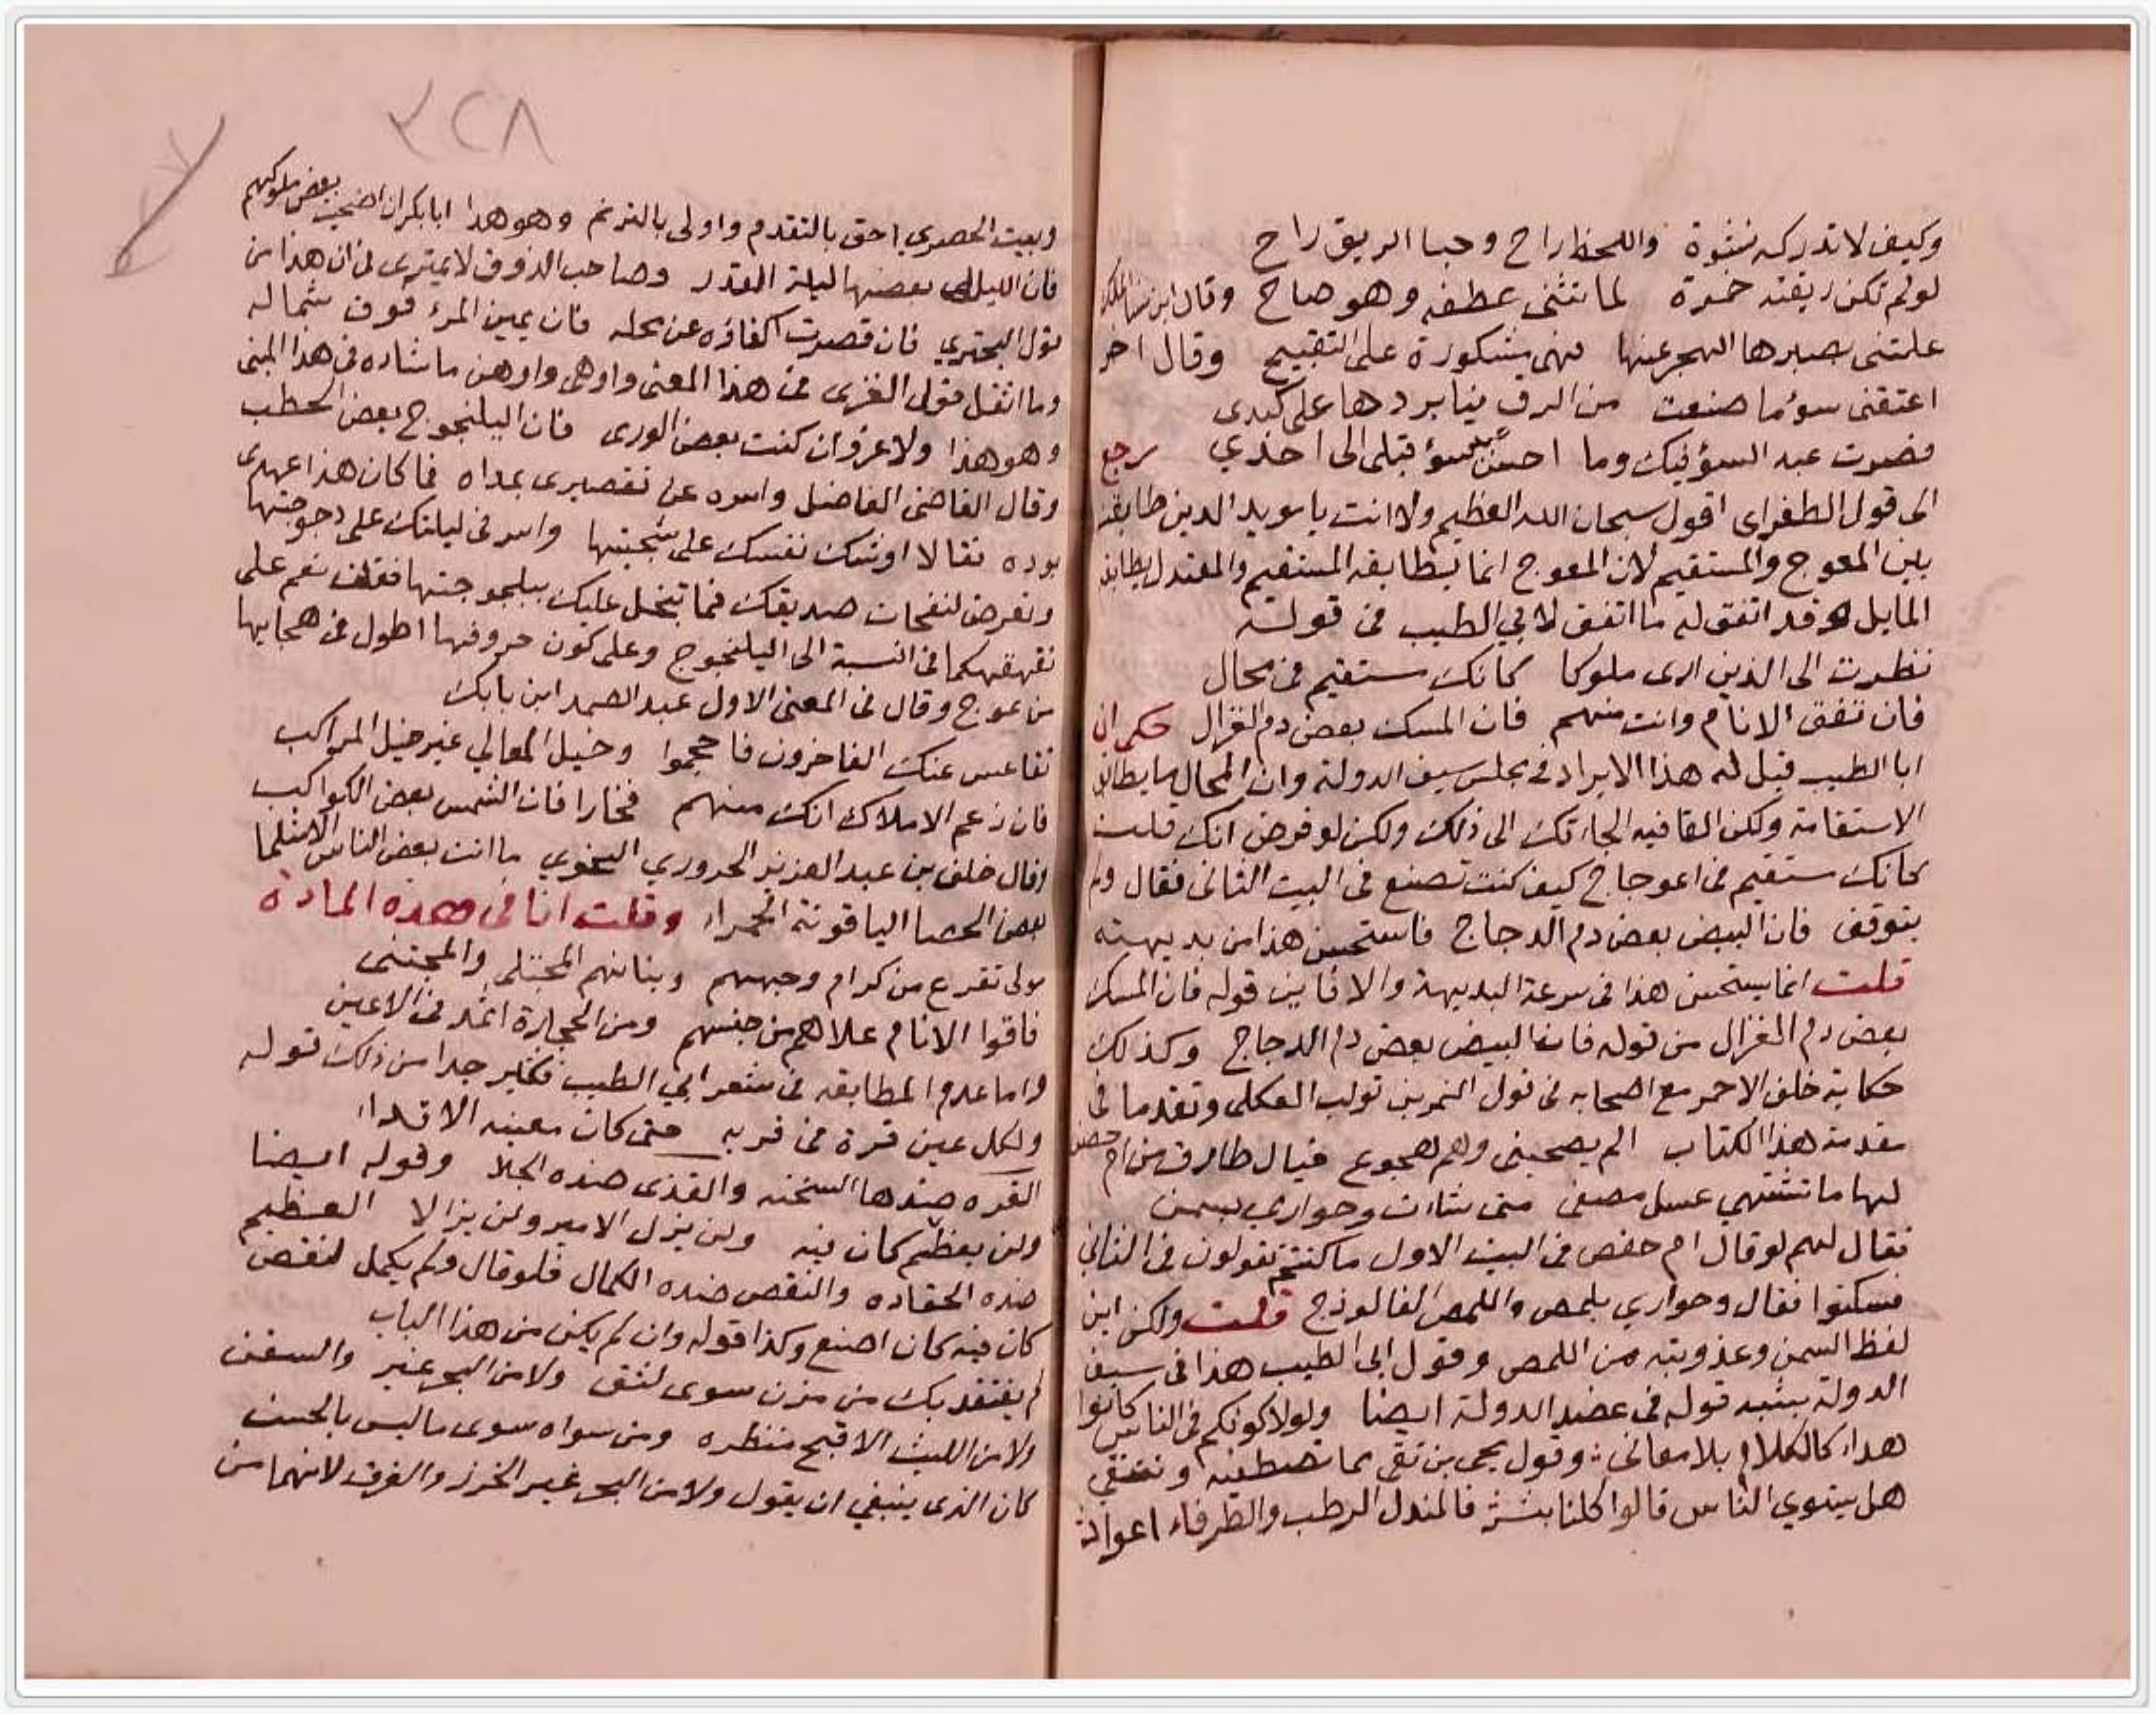 وكيف لا تدركه نشوة واللحظ راح وجنا الريق راح
لو لم تكن ريقته خمرة لما تثنى عطفه وهو صاح وقال ابن سنا الملك
علمتنى بصبرها الهجر عنها فهى مشكورة على التقبيح وقال اخر
اعتقنى سوء ما صنعت من الرق فيا بردها على كبدى
فصرت عبد السؤ فيك وما احسن سؤ قبلى الى احد يرجع
الى قول الطغراى اقول سبحان الله العظيم ولا انت يا مويد الدين طابقت
بين المعوج والمستقيم لان المعوج انما يطابقه المستقيم والمعتدل يطابقه
المايل وقد اتفق له ما اتفق لابي الطيب فى قوله
نظرت الى الذين ارى ملوكا كانك مستقيم فى محال
فان تفق الانام وانت منهم فان المسك بعض دم الغزال حكى ان
ابا الطيب قيل له هذا الايراد فى مجلس سيف الدولة وان المحال ما يطابق
الاستقامة ولكن القافيه الجاءتك الى ذلك ولكن لو فرض انك قلت
كانك مستقيم فى اعوجاج كيف كنت تصنع فى البيت الثانى فقال ولم
يتوقف فان البيض بعض دم الدجاج فاستحسن هذا من بديهته
قلت انما يستحسن هذا فى سرعة البديهة والا فاين قوله فان المسك
بعض دم الغزال من قوله فان البيض بعض دم الدجاج وكذلك
حكاية خلف الاحمر مع اصحابه فى قول النمر بن تولب العكلى وتقدما فى
مقدمة هذا الكتاب الم بصحبنى وهم هجوع خيال طارق من ام حصن
لها ما تشتهي عسل مصفى متى شاءت وحوارى بسمن
فقال لهم لو قال ام حفص فى البيت الاول ما كنتم تقولون فى الثانى
فسكتوا فقال وحوارى بلمص واللمص الفالوذج قلت ولكن اين
لفظ السمن وعذوبته من اللمص وقول ابى الطيب هذا فى سيف
الدولة يشبه قوله فى عضد الدولة ايضا ولولا كونكم فى الناس كانوا
هداء كالكلام بلا معانى وقول يحيى بن تقى بما تصطفيه وتنتقي
هل يستوي الناس قالوا كلنا بشر فالمندل الرطب والطرفاء اعواد
٢٢٨
وبيت الحصري احق بالتقدم واولى بالترنم وهو هذا ابا بكر ان اضحيت بعض ملوكهم
فان الليالى بعضها ليلة القدر وصاحب الذوق لا يمترى فى ان هذا من
قول البحتري فان قصرت اكفاؤه عن محله فان يمين المرء فوق شماله
وما اثقل قول الغزى فى هذا المعنى واوهى واوهن ما شاده فى هذا المبنى
وهو هذا ولا غرو ان كنت بعض الورى فان اليلنجوج بعض الحطب
وقال القاضى الفاضل واسره عن تقصيرى بمداه فما كان هذا عهدى
بوده فقالا اوشك نفسك على شجيتها واسر فى ليلتك على دجوجيتها
وتعرض لنفحات صديقك فما تبخل عليك بيلنجوجيتها فقلت نعم على
تقهقهكما فى النسبة الى اليلنجوج وعلى كون حروفها اطول فى هجايها
من عوج وقال فى المعنى الاول عبد الصمد ابن بابك
تقاعس عنك الفاخرون فاحجموا وخيل المعالي غير خيل المواكب
فان زعم الاملاك انك منهم فخارا فان الشمس بعض الكواكب
وقال خلف بن عبد العزيز الحروري النحوي ما انت بعض الناس الا مثلما
بعض الحصا الياقوتة الحمراء وقلت انا فى هذه المادة
مولى تفرع من كرام وجههم وبنانهم المجتلى والمجتنى
فاقوا الانام علاهم من جنسهم ومن الحجارة اثمد فى الاعين
واما عدم المطابقه فى شعر ابي الطيب فكثير جدا من ذلك قوله
ولكل عين قرة فى قربه حتى كان مغيبه الاقذاء
القره ضدها السخنه والقذى ضده الجلا وقوله ايضا
ولن يعظم كان فيه ولن يزل الامير ولن يزالا العظيم
ضده الحقاده والنقص ضده الكمال فلو قال ولم يكمل لنقص
كان فيه كان اصنع وكذا قوله وان لم يكن من هذا الباب
لم يفتقد بك من مزن سوى لثق ولا من البحر غير والسفن
ولا من الليث الا قبح منظره ومن سواه سوى ما ليس بالحسن
كان الذى ينبغي ان يقول ولا من البحر غير الخرز والغرق لانهما من